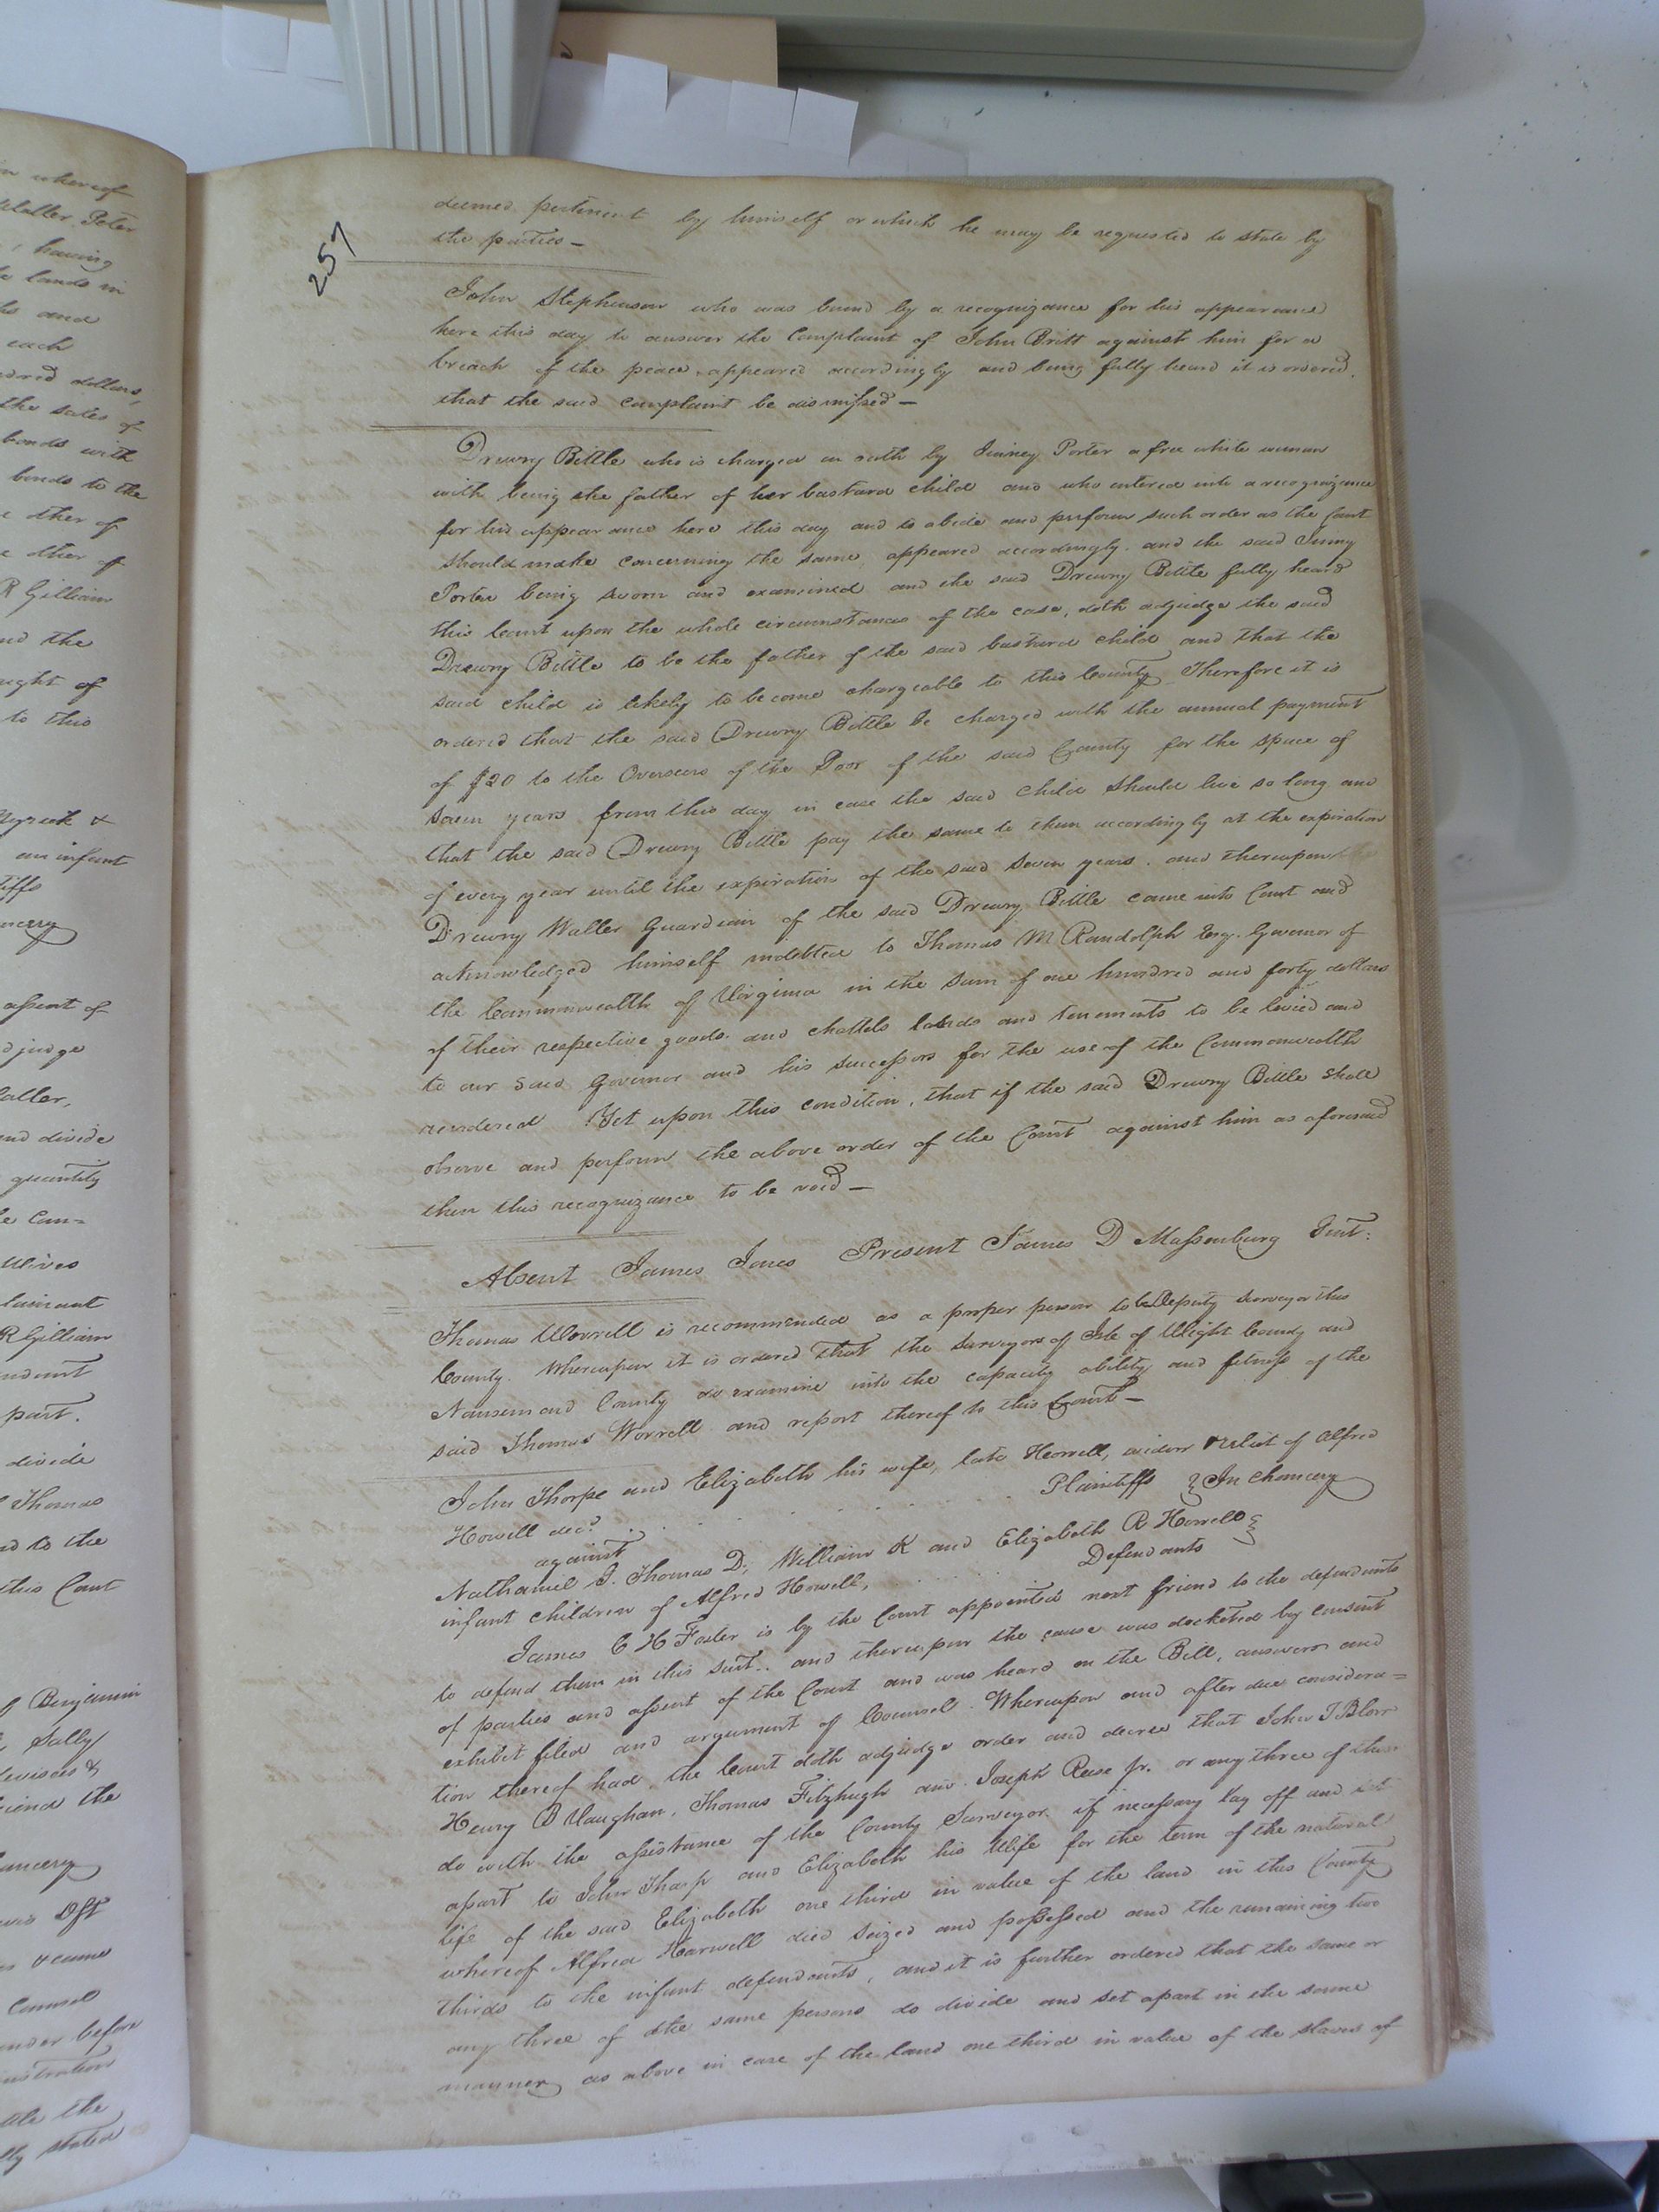 257
deemed pertinent by himself or which he may be requested to state by
the parties —
John Stephenson who was bound by a recognizance for his appearance
here this day to answer the Complaint of John Britt against him for a
breach of the peace appeared accordingly and being fully heard it is ordered
that the said complaint be dismissed —
Drewry Bittle who is charged on oath by Jinney Porter a free white woman
with being the father of her bastard child and who entered into a recognizance
for his appearance here this day and to abide and perform such order as the Court
should make concerning the same, appeared accordingly. and the said Jinny
Porter being sworn and examined and the said Drewry Bittle fully heard
this Court upon the whole circumstances of the case, doth adjudge the said
Drewry Bittle to be the father of the said bastard child and that the
said child is likely to become chargeable to this County Therefore it is
ordered that the said Drewry Bittle be charged with the annual payment
of $20 to the Overseers of the Poor of the said County for the space of
seven years from this day in case the said child should live so long and
that the said Drewry Bittle pay the same to them accordingly at the expiration
of every year until the expiration of the said seven years. and thereupon
Drewry Waller Guardian of the said Drewry Bittle came into Court and
acknowledged himself indebted to Thomas M Randolph Esq. Governor of
the Commonwealth of Virginia in the sum of one hundred and forty dollars
of their respective goods and chattels lands and tenements to be levied and
to our said Governor and his successors for the use of the Commonwealth
rendered Yet upon this condition, that if the said Drewry Bittle shall
observe and perform the above order of the Court against him as aforesaid
then this recognizance to be void —
Absent James Jones Present James D Massenburg Gent:
Thomas Worrell is recommended as a proper person to be Deputy Surveyor this
County. Whereupon it is ordered that the surveyors of Isle of Wight County and
Nansemond County do examine into the capacity ability and fitness of the
said Thomas Worrell and report thereof to this Court —
John Thorpe and Elizabeth his wife, late Howell, widow & relict of Alfred
Howell decd. . . . . . . . Plaintiffs } In Chancery
against
Nathaniel J. Thomas D, William K and Elizabeth R Howell }
infant children of Alfred Howell, . . . . . Defendants
James C H Foster is by the Court appointed next friend to the defendants
to defend them in this suit.. and thereupon the cause was docketed by consent
of parties and assent of the Court and was heard on the Bill, answers and
exhibit filed and argument of Counsel. Whereupon and after due considera=
tion thereof had, the Court doth adjudge order and decree that John T Blow
Henry B Vaughan, Thomas Fitzhugh and Joseph Rese Jr. or any three of them
do with the assistance of the County Surveyor if necessary lay off and set
apart to John Thorp and Elizabeth his Wife for the term of the natural
life of the said Elizabeth one third in value of the land in this County
whereof Alfred Harwell died seized and possessed and the remaining two
thirds to the infant defendants, and it is further ordered that the same or
any three of the same persons do divide and set apart in the same
manner as above in case of the land one third in value of the slaves of